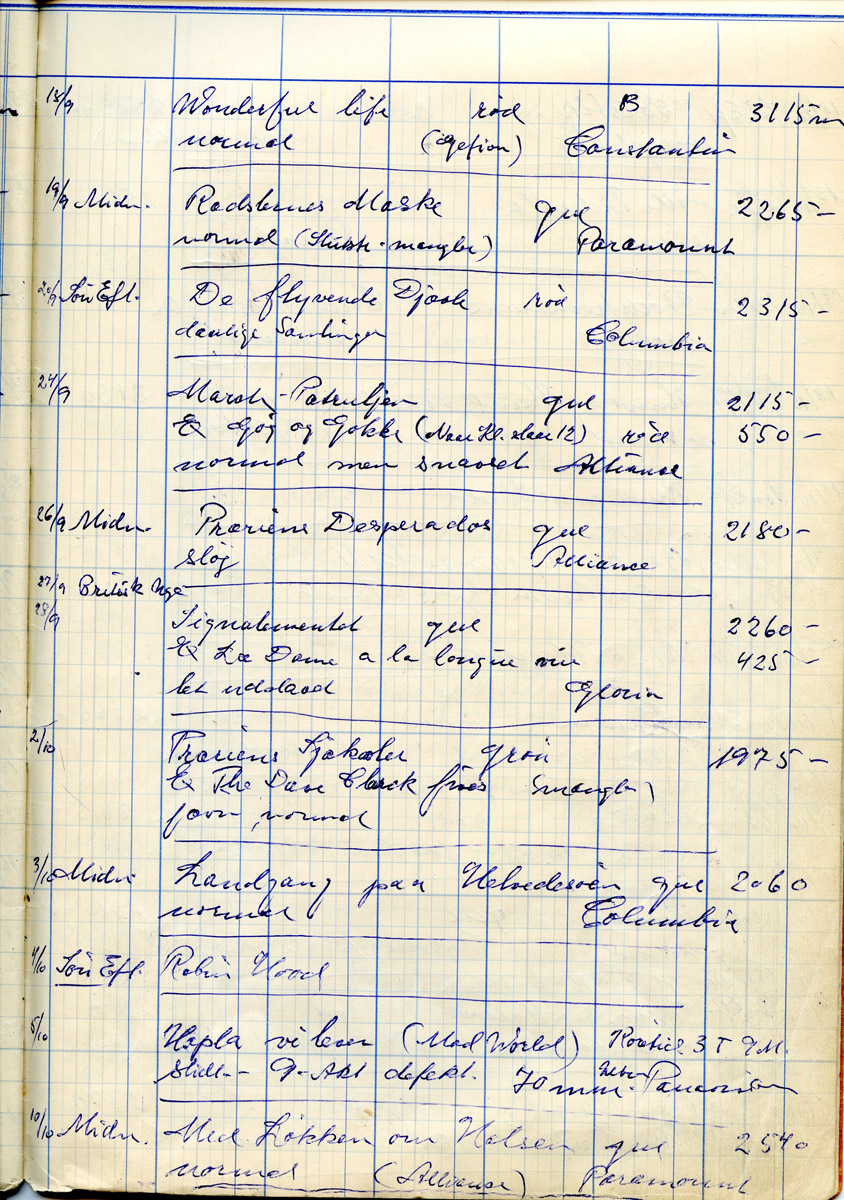 18/9 Wonderful life rød B 3115 m
normal (Gefion) Constantin
19/9 Midn. Rædslernes Maske gul 2265 —
normal (Slutsk. mangler) Paramount
20/9 Søn Eft. De flyvende Djævle rød 2315 —
daarlige Samlinger Columbia
24/9 Marok-Patruljen gul 2115 —
& Gøg og Gokke (Naar Kl. slaar 12) rød 550 —
normal men snavset Alliance
26/9 Midn. Præriens Desperados gul 2180 —
sløj Alliance
27/9 Britisk Uge
28/9 Signalementet gul 2260 —
& La Dame a la longue vue 425 —
let udslaaet Gloria
2/10 Præriens Sjakaler grøn 1975 —
& The Dave Clark five (mangler)
jævn, normal
3/10 Midn. Landgang paa Helvedesøen gul 2060
normal Columbia
4/10 Søn Eft. Robin Hood
5/10 Hopla vi lever (Mad World) 3 T 9 M.
Slidt - 9. Akt defekt. 70 mm. Panavision
10/10 Midn. Med Løkken om Halsen gul 2540
normal (Alliance) Paramount